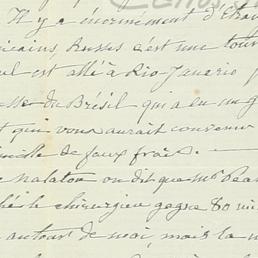 Il y a énormément d'étran
icains, russes c'est une tour
ul est allé à Rio-Janerio p
du Brésil qui a eu un g
t qui vous aurait convenu
de faux frais.
malaton on dit que Mr Pear
le chirurgien gagne 80 mi
autour de moi, mais la n